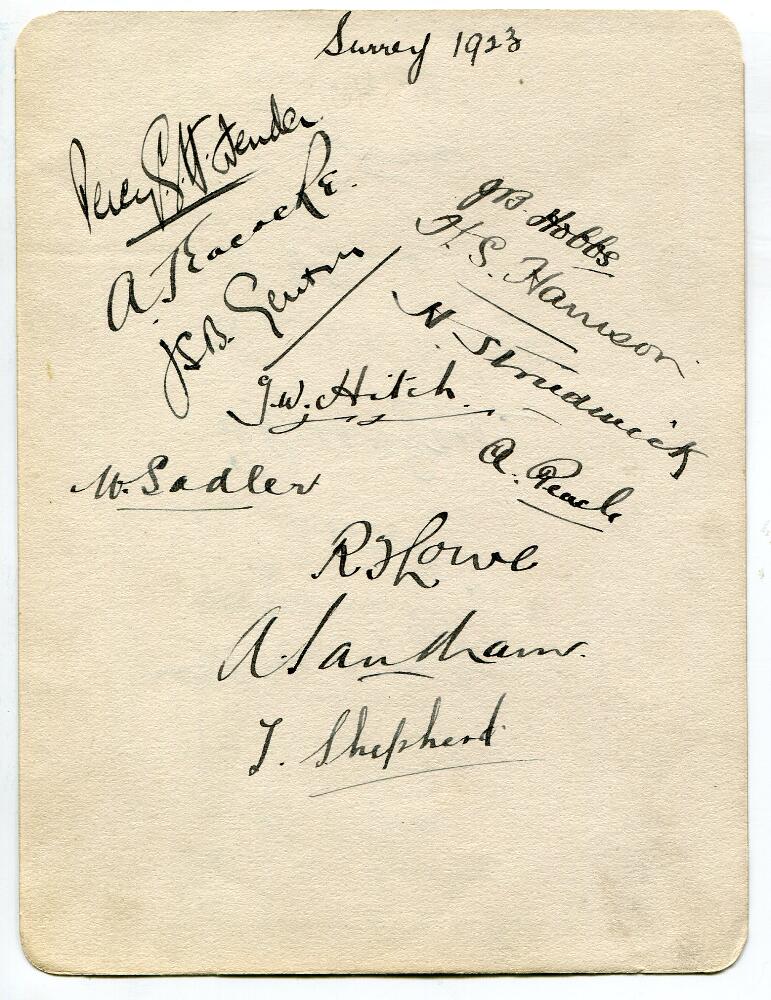 Surrey 1923
Percy G.H. Fender
A. Peacocke.
J.S.B. Gentry
J.B. Hobbs
H.S. Harrison
H. Strudwick
J.W. Hitch.
A. Peach
W. Sadler
R F Lowe
A. Sandham.
T. Shepherd